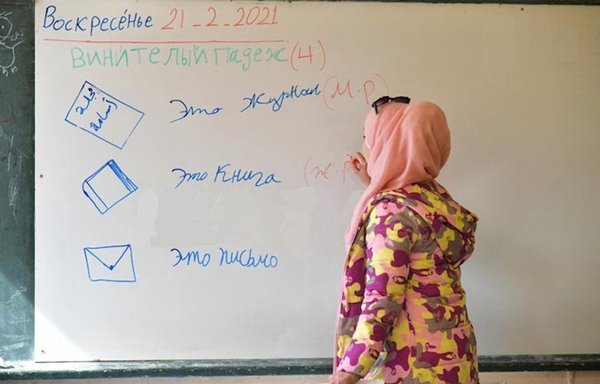 Воскресе́нье 21-2-2021
Вини́телый Падеж (4)
Это Журнал (М.р)
Это Книга (ж.р
Это письмо